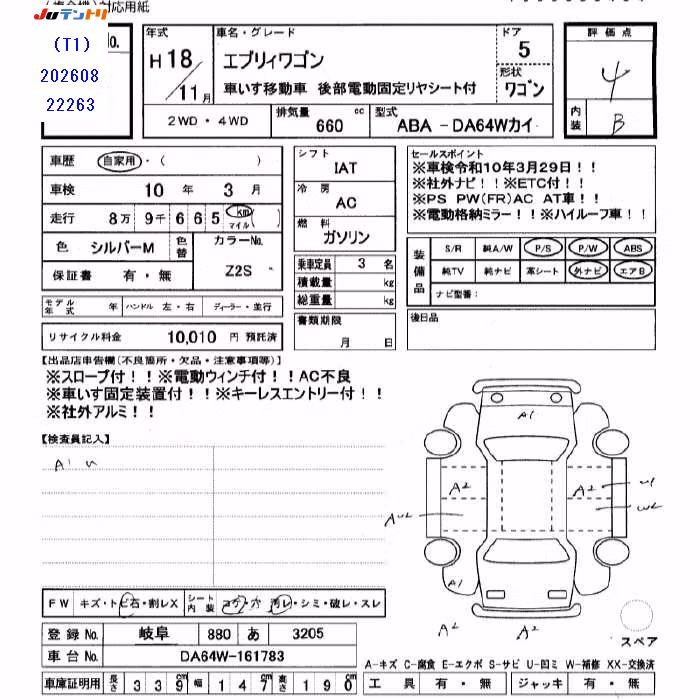 対応用紙
JUテントリ
(T1)
202608
22263
No.
年式
H18/11月
車名・グレード
エブリィワゴン
車いす移動車 後部電動固定リヤシート付
ドア
5
形状
ワゴン
評価点
4
内装
B
2WD・4WD
排気量
660 cc
型式
ABA -DA64Wカイ
車歴
自家用・( )
車検
10年 3月
走行
8万 9千 6 6 5 km マイル
色
シルバーM
色替
カラーNo.
Z2S
保証書
有・無
シフト
IAT
冷房
AC
燃料
ガソリン
乗車定員 3 名
積載量 kg
総重量 kg
セールスポイント
※車検令和10年3月29日!!
※社外ナビ!!※ETC付!!
※PS PW(FR)AC AT車!!
※電動格納ミラー!!※ハイルーフ車!!
装備品
S/R 純A/W P/S P/W ABS
純TV 純ナビ 革シート 外ナビ エアB
ナビ型番:
モデル年式 年 ハンドル 左・右 ディーラー・並行
リサイクル料金 10,010 円 預託済
書類期限
月 日
後日品
【出品店申告欄(不良箇所・欠品・注意事項等)】
※スロープ付!!※電動ウィンチ付!!AC不良
※車いす固定装置付!!※キーレスエントリー付!!
※社外アルミ!!
【検査員記入】
A1 U
A1
A2
A2
U1
W2
AU2
A1
A2
A2
FW キズ・トビ石・割レX
シート内装 コゲ・穴 汚レ・シミ・破レ・スレ
スペア
登録No. 岐阜 880 あ 3205
車台No. DA64W-161783
車庫証明用 長さ 339cm 幅 147cm 高さ 190cm
A-キズ C-腐食 E-エクボ S-サビ U-凹ミ W-補修 XX-交換済
工具 有・無 ジャッキ 有・無